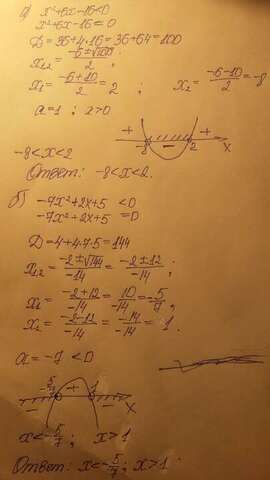 а) x²+6x-16<0
x²+6x-16=0
D=36+4·16=36+64=100
x₁,₂=(-6±√100)/2;
x₁=(-6+10)/2=2; x₂=(-6-10)/2=-8
a=1; 2>0
+ + 
-8 - 2 x
-8<x<2
Ответ: -8<x<2.
б) -7x²+2x+5<0
-7x²+2x+5=0
D=4+4·7·5=144
x₁,₂=(-2±√144)/-14=(-2±12)/-14;
x₁=(-2+12)/-14=10/-14=-5/7;
x₂=(-2-12)/-14=-14/-14=1.
a=-7<0
-5/7 + 1
- - x
x<-5/7; x>1
Ответ: x<-5/7; x>1.